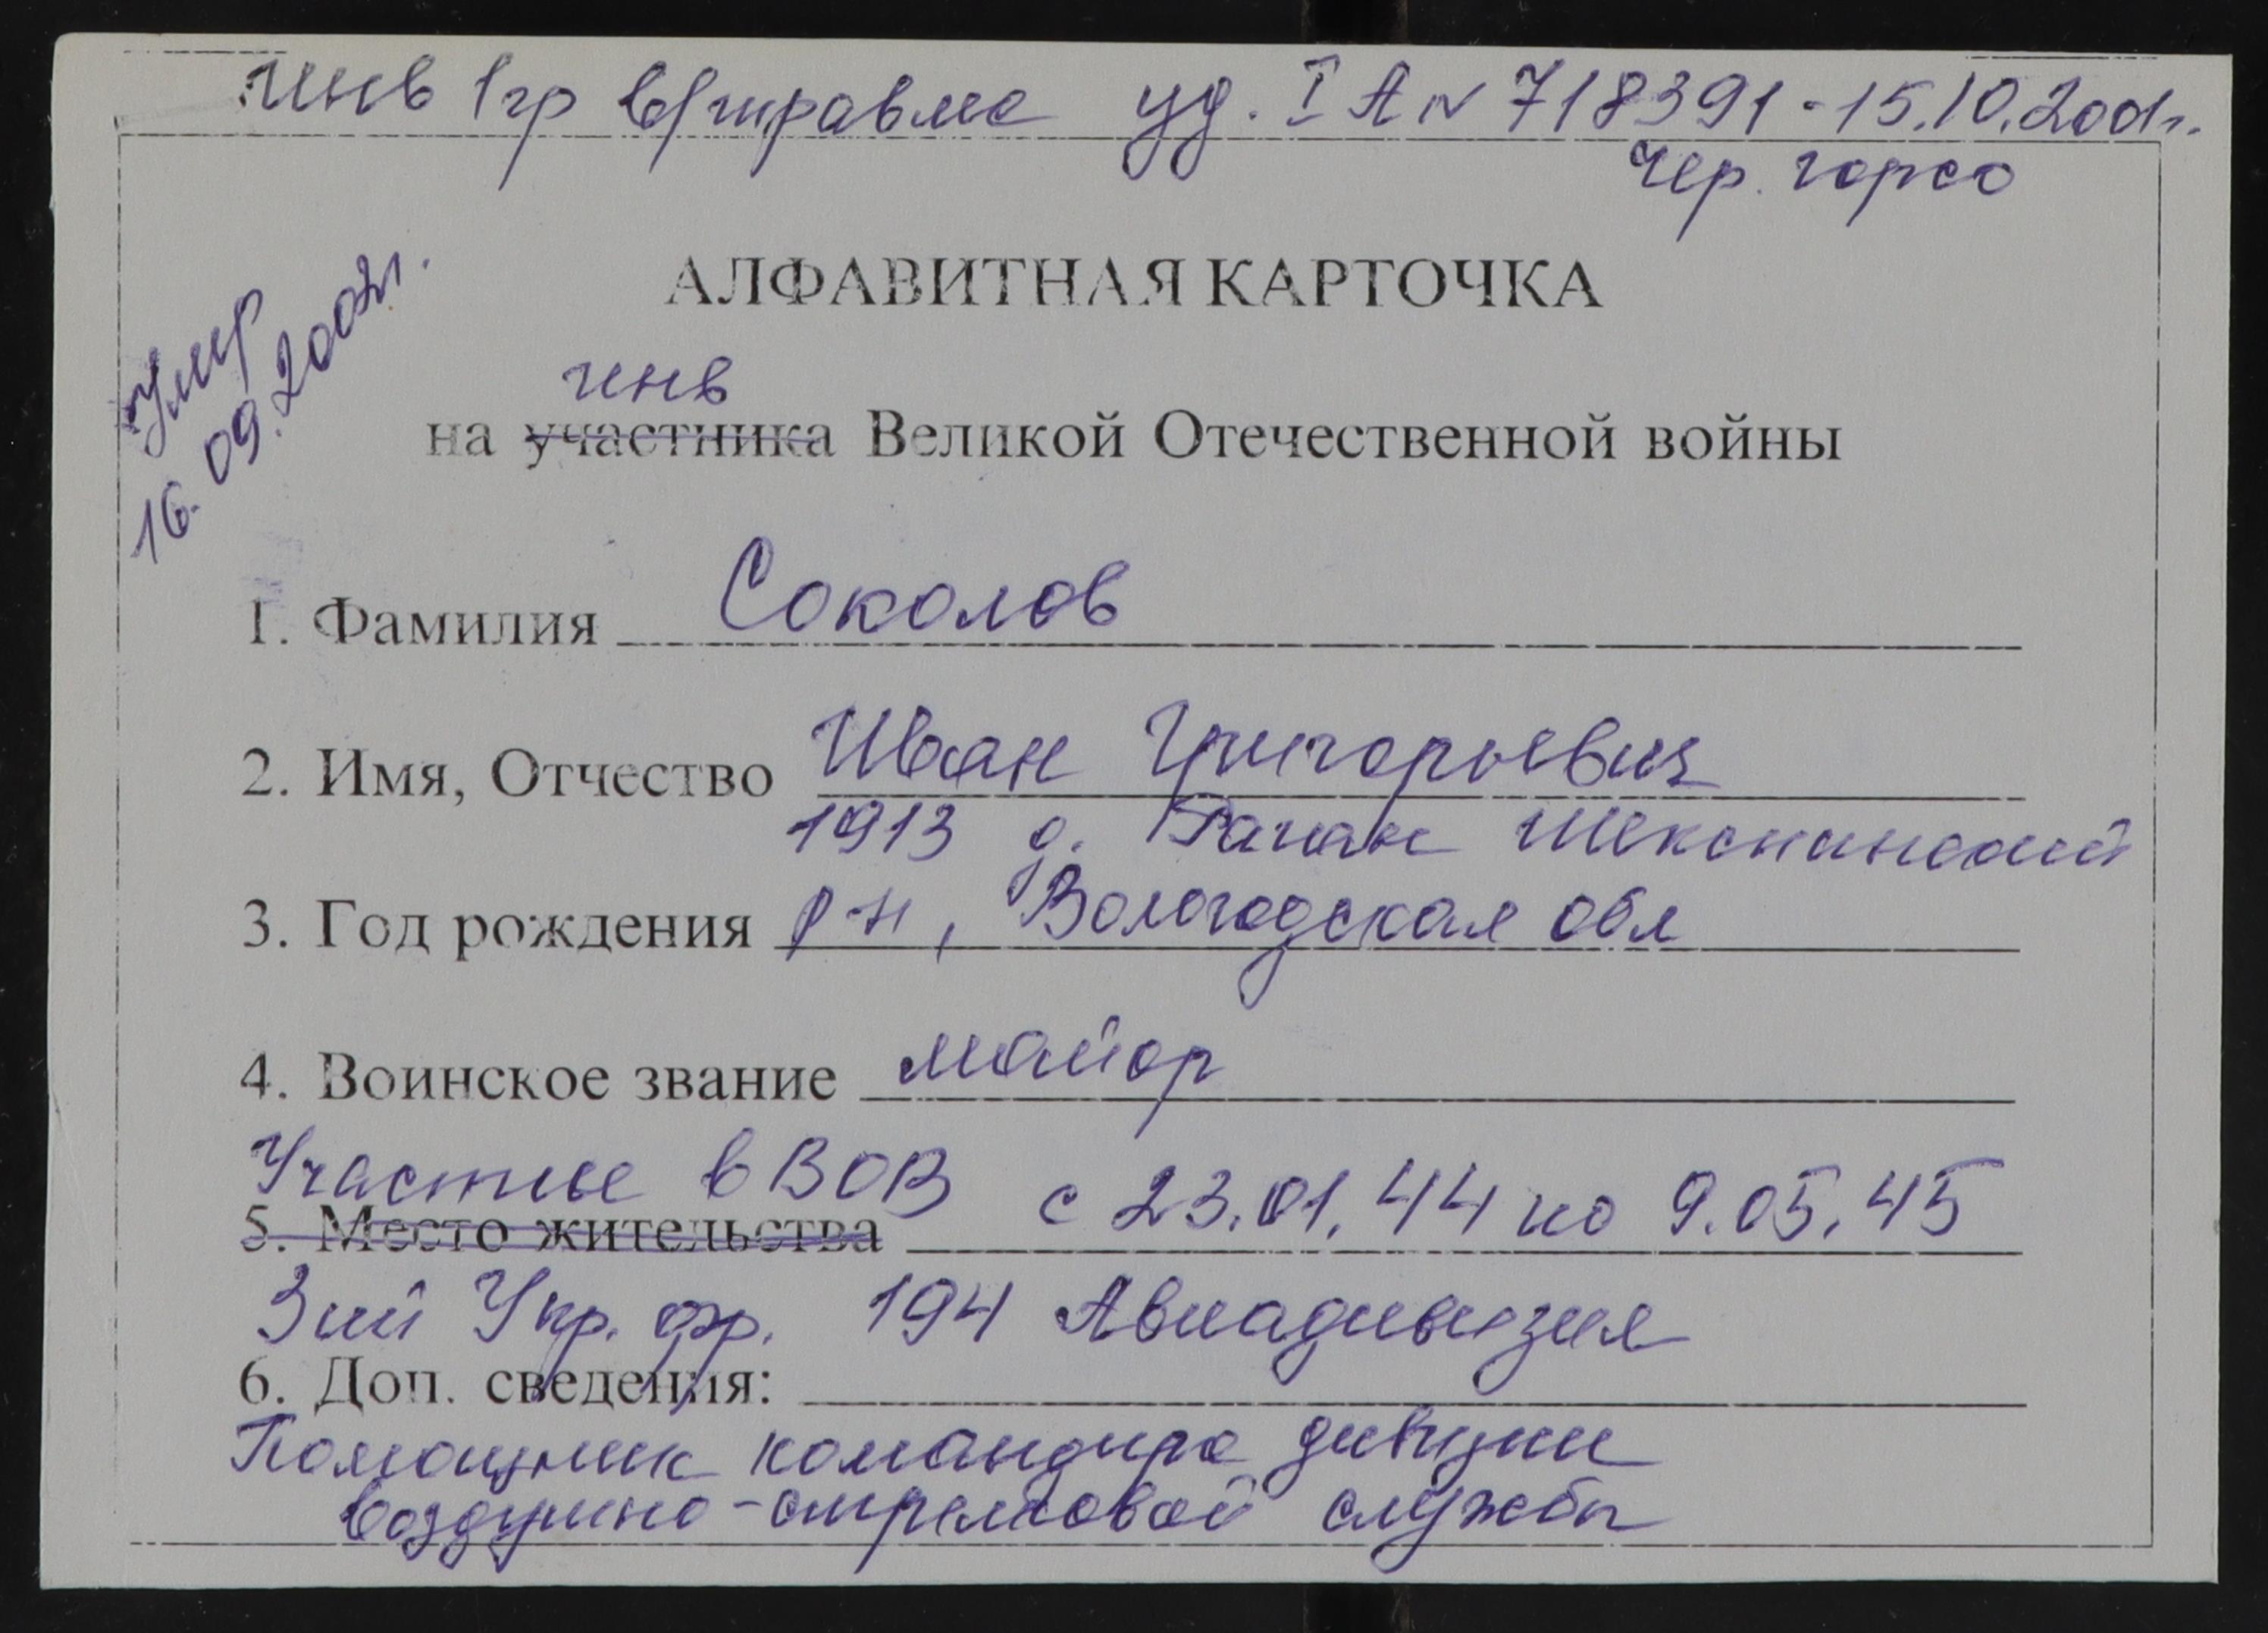 инв 1гр в/травма уд. I А № 718391 - 15.10.2001г.
Чер. горсо
Умер
16.09.2002г.
АЛФАВИТНАЯ КАРТОЧКА
инв
на участника Великой Отечественной войны
1. Фамилия Соколов
2. Имя, Отчество Иван Григорьевич
1913 д. Шекснинский
3. Год рождения р-н, Вологодская обл
4. Воинское звание майор
Участие в ВОВ с 23.01.44 по 9.05.45
5. Место жительства
3ий Укр. фр. 194 Авиадивизия
6. Доп. сведения:
Помощник командира
воздушно-стрелковой службы